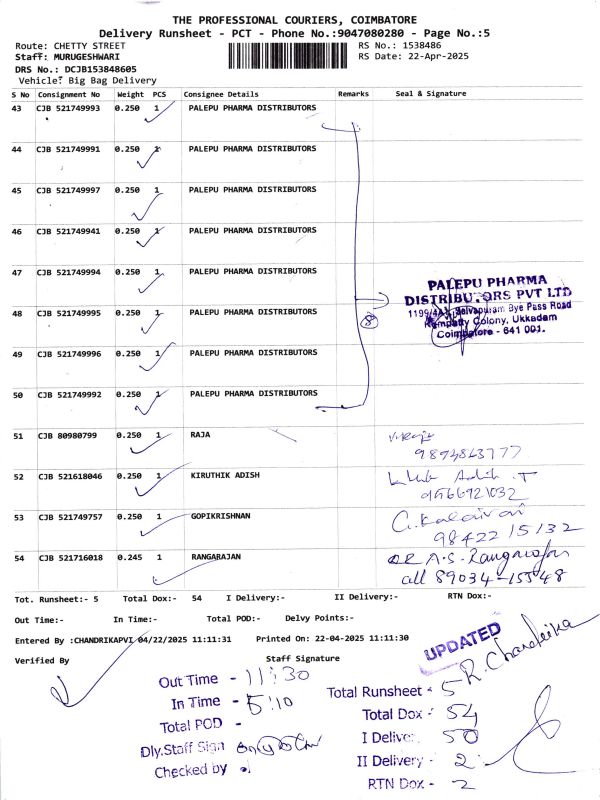 THE PROFESSIONAL COURIERS, COIMBATORE
Delivery Runsheet - PCT - Phone No.:9047080280 - Page No.:5
Route: CHETTY STREET
RS No.: 1538486
Staff: MURUGESHWARI
RS Date: 22-Apr-2025
DRS No.: DCJB153848605
Vehicle: Big Bag Delivery
S No Consignment No Weight PCS Consignee Details Remarks Seal & Signature
43 CJB 521749993 0.250 1 PALEPU PHARMA DISTRIBUTORS
44 CJB 521749991 0.250 1 PALEPU PHARMA DISTRIBUTORS
45 CJB 521749997 0.250 1 PALEPU PHARMA DISTRIBUTORS
46 CJB 521749941 0.250 1 PALEPU PHARMA DISTRIBUTORS
47 CJB 521749994 0.250 1 PALEPU PHARMA DISTRIBUTORS
PALEPU PHARMA
DISTRIBUTORS PVT LTD
Selvapuram Bye Pass Road
Colony, Ukkadam
Coimbatore - 641 001.
48 CJB 521749995 0.250 1 PALEPU PHARMA DISTRIBUTORS
49 CJB 521749996 0.250 1 PALEPU PHARMA DISTRIBUTORS
50 CJB 521749992 0.250 1 PALEPU PHARMA DISTRIBUTORS
51 CJB 80980799 0.250 1 RAJA
52 CJB 521618046 0.250 1 KIRUTHIK ADISH
9566921032
53 CJB 521749757 0.250 1 GOPIKRISHNAN
G. Kalaivani
98422 15132
54 CJB 521716018 0.245 1 RANGARAJAN
A.S. Rangarajan
89034-15548
Tot. Runsheet:- 5 Total Dox:- 54 I Delivery:- II Delivery:- RTN Dox:-
Out Time:- In Time:- Total POD:- Delvy Points:-
Entered By :CHANDRIKAPVI 04/22/2025 11:11:31 Printed On: 22-04-2025 11:11:30
Verified By Staff Signature
UPDATED
R. Chandrika
Out Time - 11:30
In Time - 5:10
Total POD -
Dly.Staff Sign
Checked by
Total Runsheet - 5
Total Dox - 54
I Delivery 50
II Delivery - 2
RTN Dox - 2